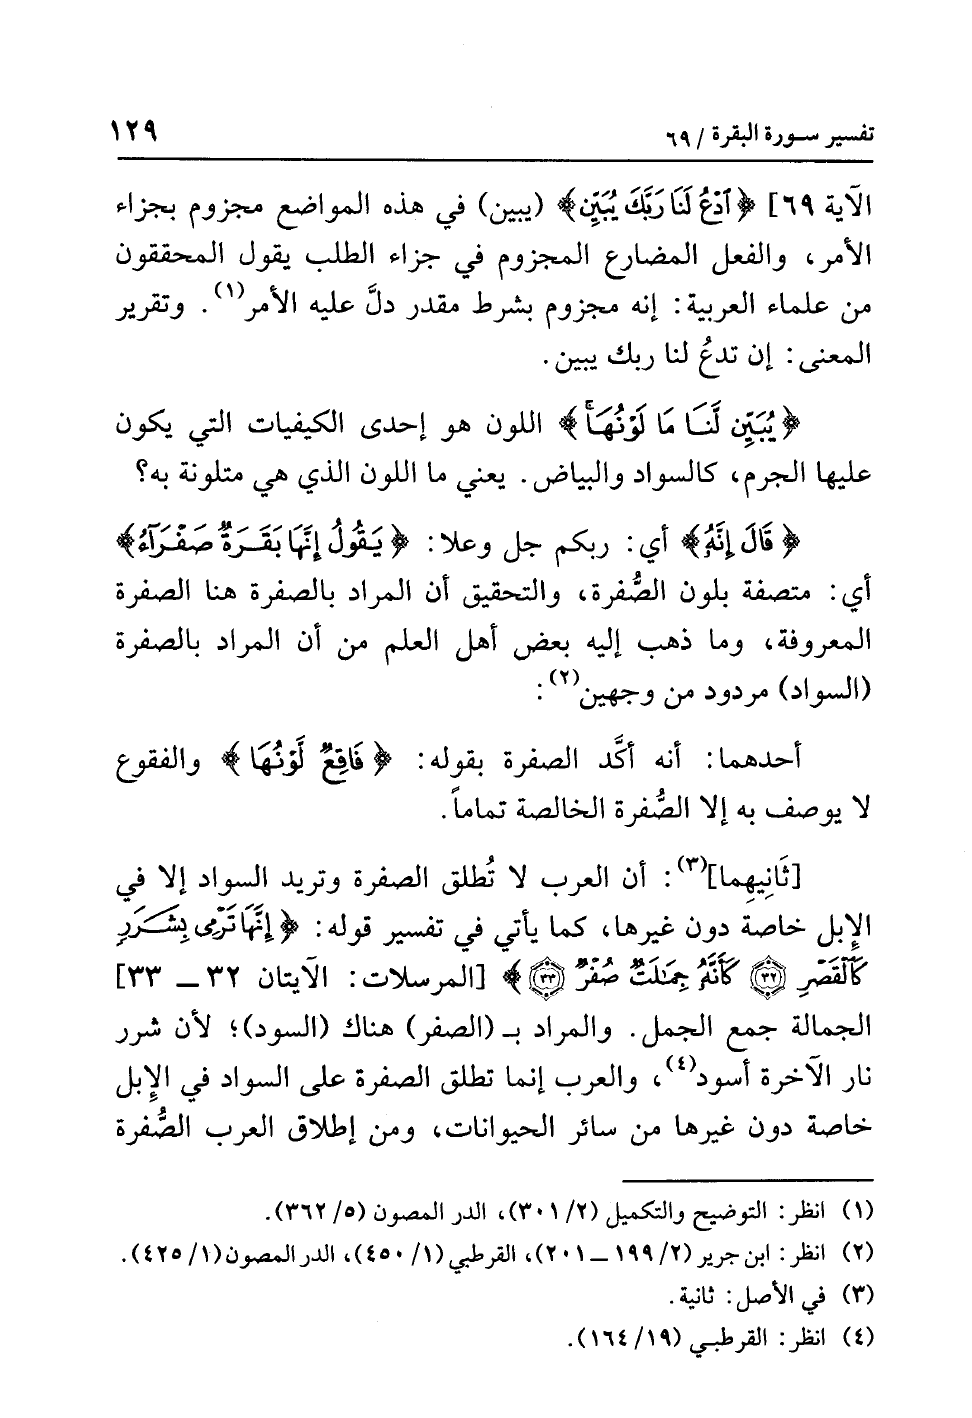 تفسير سورة البقرة / ٦٩
١٢٩
الآية ٦٩] ﴿ٱدۡعُ لَنَا رَبَّكَ يُبَيِّن﴾ (يبين) في هذه المواضع مجزوم بجزاء
الأمر، والفعل المضارع المجزوم في جزاء الطلب يقول المحققون
من علماء العربية: إنه مجزوم بشرط مقدر دلَّ عليه الأمر(١). وتقرير
المعنى: إن تدعُ لنا ربك يبين.
﴿يُبَيِّن لَّنَا مَا لَوۡنُهَاۚ﴾ اللون هو إحدى الكيفيات التي يكون
عليها الجرم، كالسواد والبياض. يعني ما اللون الذي هي متلونة به؟
﴿قَالَ إِنَّهُۥ﴾ أي: ربكم جل وعلا: ﴿يَقُولُ إِنَّهَا بَقَرَةٞ صَفۡرَآءُ﴾
أي: متصفة بلون الصُّفرة، والتحقيق أن المراد بالصفرة هنا الصفرة
المعروفة، وما ذهب إليه بعض أهل العلم من أن المراد بالصفرة
(السواد) مردود من وجهين(٢):
أحدهما: أنه أكَّد الصفرة بقوله: ﴿فَاقِعٞ لَّوۡنُهَا﴾ والفقوع
لا يوصف به إلا الصُّفرة الخالصة تماماً.
[ثَانِيهِما](٣): أن العرب لا تُطلق الصفرة وتريد السواد إلا في
الإِبل خاصة دون غيرها، كما يأتي في تفسير قوله: ﴿إِنَّهَا تَرۡمِي بِشَرَرٖ
كَٱلۡقَصۡرِ ٣٢ كَأَنَّهُۥ جِمَٰلَتٞ صُفۡرٞ ٣٣﴾ [المرسلات: الآيتان ٣٢ ــ ٣٣]
الجمالة جمع الجمل. والمراد بـ (الصفر) هناك (السود)؛ لأن شرر
نار الآخرة أسود(٤)، والعرب إنما تطلق الصفرة على السواد في الإِبل
خاصة دون غيرها من سائر الحيوانات، ومن إطلاق العرب الصُّفرة
(١) انظر: التوضيح والتكميل (٣٠١/٢)، الدر المصون (٣٦٢/٥).
(٢) انظر: ابن جرير (١٩٩/٢ ــ ٢٠١)، القرطبي (٤٥٠/١)، الدر المصون (٤٢٥/١).
(٣) في الأصل: ثانية.
(٤) انظر: القرطبي (١٦٤/١٩).